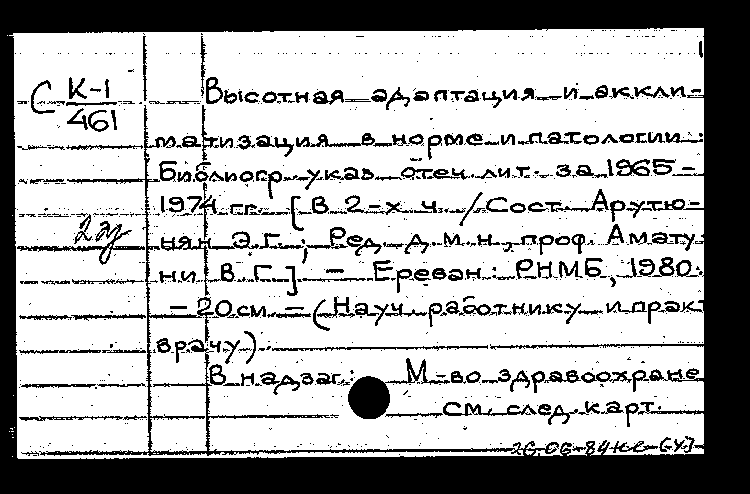 С К-1
461
Высотная адаптация и аккли-
матизация в норме и патологии :
Библиогр. указ. отеч. лит. за 1965-
1974 гг. [В 2-х ч. / Сост. Арутю-
нян Э.Г. ; Ред. д.м.н., проф. Амату-
ни В.Г.] - Ереван : РНМБ, 1980.
- 20 см. - (Науч. работнику и практ.
врачу).
В надзаг.: М-во здравоохране
см. след. карт.